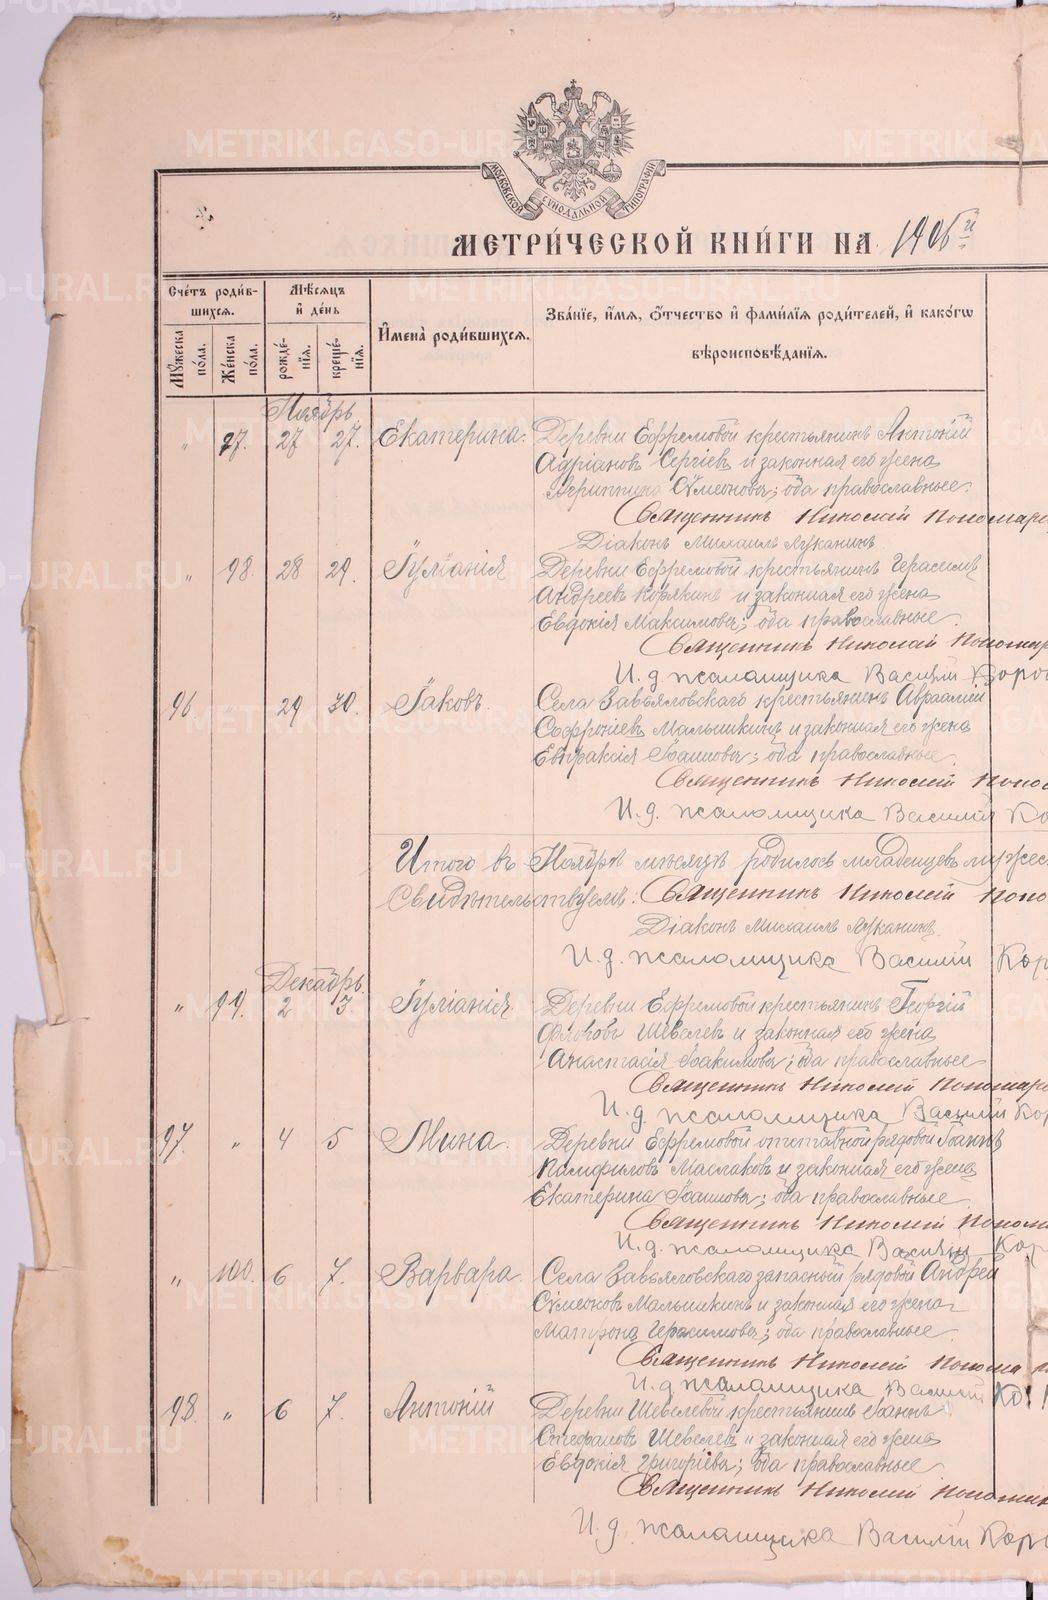 МОСКОВСКОЙ СѴНОДАЛЬНОЙ ТИПОГРАФІИ
МЕТРИ́ЧЕСКОЙ КНИ́ГИ НА 1906й
Сче́тъ роди́в-
шихсѧ.
Мѣ́сѧцъ
и҆ де́нь
И҆мена̀ роди́вшихсѧ.
Зва́нїе, и҆́мѧ, ѻ҆́тчество и҆ фами́лїѧ роди́телей, и҆ како́гѡ
вѣроисповѣ́данїѧ.
Мꙋ́жеска
по́ла.
Же́нска
по́ла.
рожде́-
нїѧ.
креще́-
нїѧ.
Ноябрь
" 97. 27 27. Екатерина. Деревни Ефремовой крестьянинъ Антоній
Адріановъ Сергіев и законная его жена
Агриппина Сѵмеонова; оба православные.
Священникъ Николай Пономар
Діаконъ Михаилъ Луканинъ
" 98. 28 29. Іуліанія Деревни Ефремовой крестьянинъ Герасимъ
Андреев Корякинъ и законная его жена
Евдокія Максимова; оба православные.
Священникъ Николай Пономар
И. д. псаломщика Василій Коро
96 29 30. Іаковъ. Села Завьяловскаго крестьянинъ Авраамій
Софроніев Малышкинъ и законная его жена
Евпраксія Іоаннова; оба православные.
Священникъ Николай Поно
И. д. псаломщика Василій Ко
Итого въ Ноябрѣ мѣсяцѣ родилось младенцев мужес
Свидѣтельствуемъ: Священникъ Николай Поно
Діаконъ Михаилъ Луканинъ.
И. д. псаломщика Василій Кор
Декабрь
" 99. 2 3. Іуліанія. Деревни Ефремовой крестьянинъ Георгій
Флоровъ Шевелев и законная его жена
Анастасія Іоакимова; оба православные
Священникъ Николай Пономаре
И. д. псаломщика Василій Кор
97. " 4 5 Мина. Деревни Ефремовой отставной рядовой Іоаннъ
Памфиловъ Маслаковъ и законная его жена
Екатерина Іоаннова; оба православные
Священникъ Николай Поном
И. д. псаломщика Василій Кор
" 100. 6 7. Варвара. Села Завьяловскаго запасный рядовой Андрей
Сѵмеоновъ Малышкинъ и законная его жена
Матрона Герасимова; оба православные.
Священникъ Николай Понома
И. д. псаломщика Василій Ко
98. " 6 7. Антоній Деревни Шевелевой крестьянинъ Іоаннъ
Стефановъ Шевелевъ и законная его жена
Евдокія Григоріева; оба православные
Священникъ Николай Пономар
И. д. псаломщика Василій Коро
METRIKI.GASO-URAL.RU